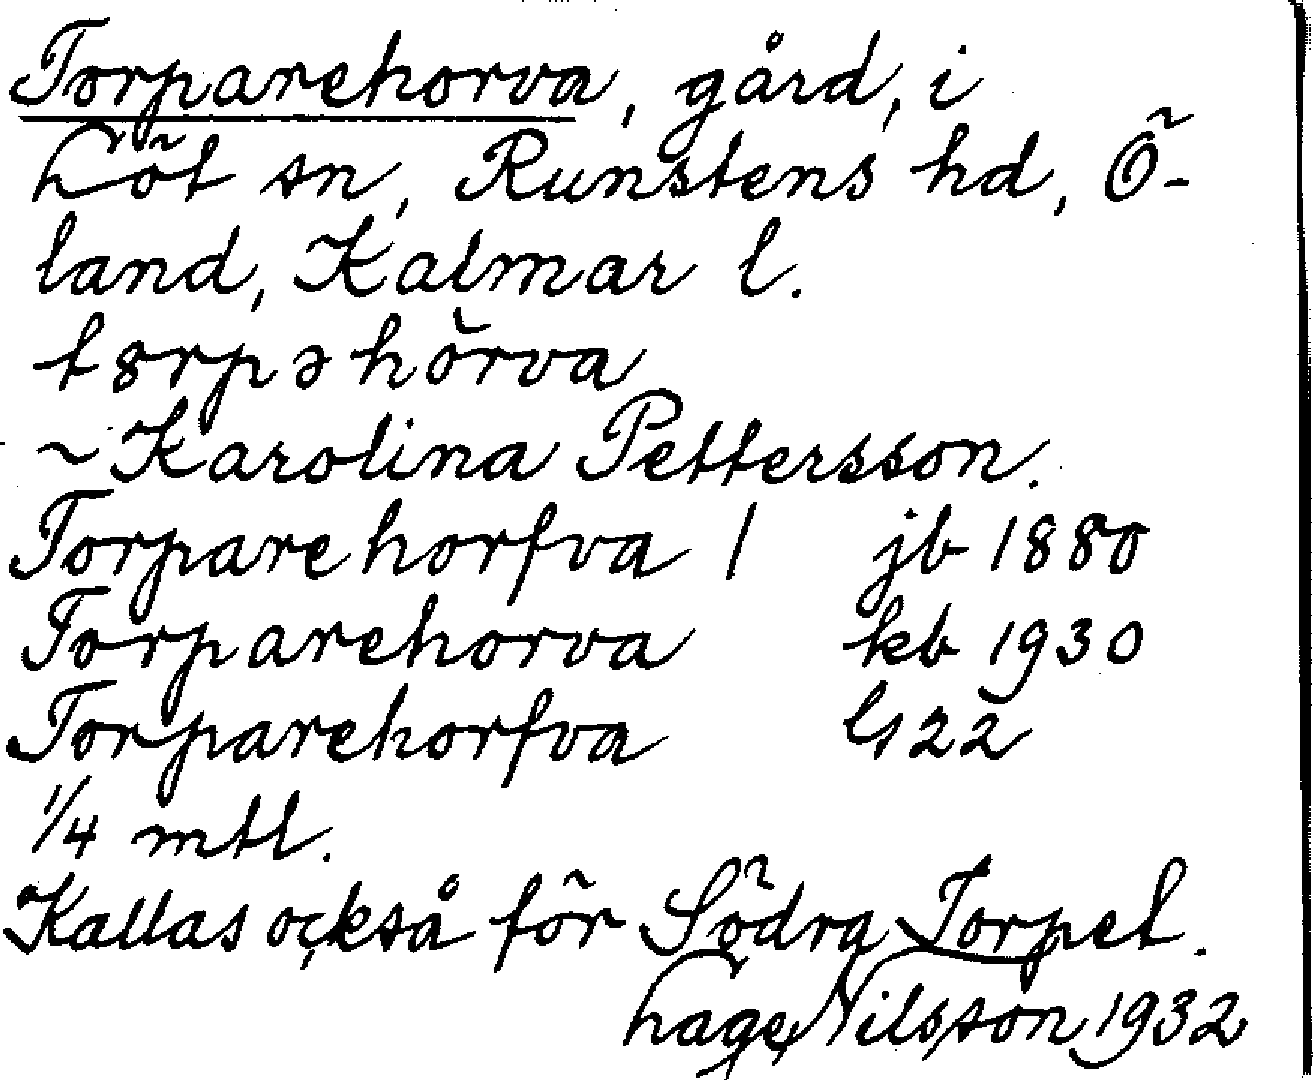 Torparehorva, gård, i
Löt sn, Runstens hd, Ö-
land, Kalmar l.
tørpəhŏrva
~ Karolina Pettersson.
Torparehorfva 1 jb 1880
Torparehorva kb 1930
Torparehorfva 22
1/4 mtl.
Kallas också för Södra Torpet.
Lage Nilsson 1932